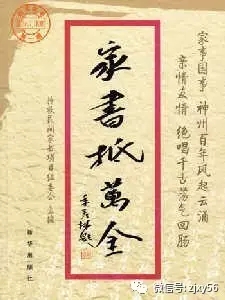 家事国事 神州百年风起云涌
亲情友情 绝唱千古荡气回肠
家書抵萬金
季羡林
抢救民间家书项目组委会 主编
新华出版社
微信号: zjxy56